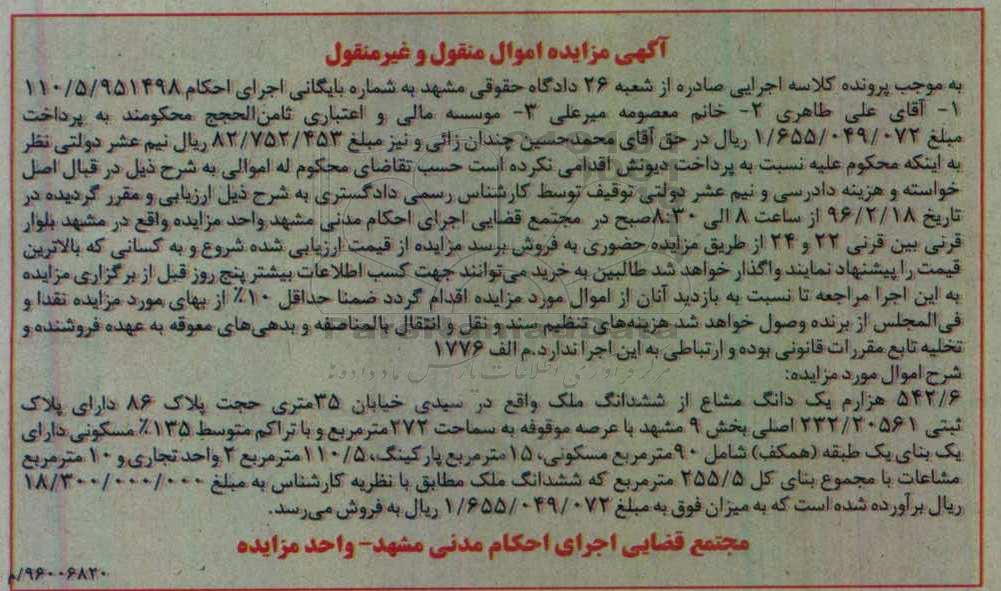 آگهی مزایده اموال منقول و غیرمنقول
به موجب پرونده کلاسه اجرایی صادره از شعبه ۲۶ دادگاه حقوقی مشهد به شماره بایگانی اجرای احکام ۱۱۰/۵/۹۵۱۴۹۸
۱- آقای علی طاهری ۲- خانم معصومه میرعلی ۳- موسسه مالی و اعتباری ثامن‌الحجج محکومند به پرداخت
مبلغ ۱/۶۵۵/۰۴۹/۰۷۲ ریال در حق آقای محمدحسین چندان زائی و نیز مبلغ ۸۲/۷۵۲/۴۵۳ ریال نیم عشر دولتی نظر
به اینکه محکوم علیه نسبت به پرداخت دیونش اقدامی نکرده است حسب تقاضای محکوم له اموالی به شرح ذیل در قبال اصل
خواسته و هزینه دادرسی و نیم عشر دولتی توقیف توسط کارشناس رسمی دادگستری به شرح ذیل ارزیابی و مقرر گردیده در
تاریخ ۹۶/۲/۱۸ از ساعت ۸ الی ۸:۳۰صبح در مجتمع قضایی اجرای احکام مدنی مشهد واحد مزایده واقع در مشهد بلوار
قرنی بین قرنی ۲۲ و ۲۴ از طریق مزایده حضوری به فروش برسد مزایده از قیمت ارزیابی شده شروع و به کسانی که بالاترین
قیمت را پیشنهاد نمایند واگذار خواهد شد طالبین به خرید می‌توانند جهت کسب اطلاعات بیشتر پنج روز قبل از برگزاری مزایده
به این اجرا مراجعه تا نسبت به بازدید آنان از اموال مورد مزایده اقدام گردد ضمنا حداقل ۱۰٪ از بهای مورد مزایده نقدا و
فی‌المجلس از برنده وصول خواهد شد هزینه‌های تنظیم سند و نقل و انتقال بالمناصفه و بدهی‌های معوقه به عهده فروشنده و
تخلیه تابع مقررات قانونی بوده و ارتباطی به این اجرا ندارد.م الف ۱۷۷۶
شرح اموال مورد مزایده:
۵۴۲/۶ هزارم یک دانگ مشاع از ششدانگ ملک واقع در سیدی خیابان ۳۵متری حجت پلاک ۸۶ دارای پلاک
ثبتی ۲۳۲/۲۰۵۶۱ اصلی بخش ۹ مشهد با عرصه موقوفه به سماحت ۲۷۲مترمربع و با تراکم متوسط ۱۳۵٪ مسکونی دارای
یک بنای یک طبقه (همکف) شامل ۹۰مترمربع مسکونی، ۱۵مترمربع پارکینگ، ۱۱۰/۵مترمربع ۲ واحد تجاری و ۱۰ مترمربع
مشاعات با مجموع بنای کل ۲۵۵/۵ مترمربع که ششدانگ ملک مطابق با نظریه کارشناس به مبلغ ۱۸/۳۰۰/۰۰۰/۰۰۰
ریال برآورده شده است که به میزان فوق به مبلغ ۱/۶۵۵/۰۴۹/۰۷۲ ریال به فروش می‌رسد.
مجتمع قضایی اجرای احکام مدنی مشهد- واحد مزایده
۹۶۰۰۶۸۲۰/م